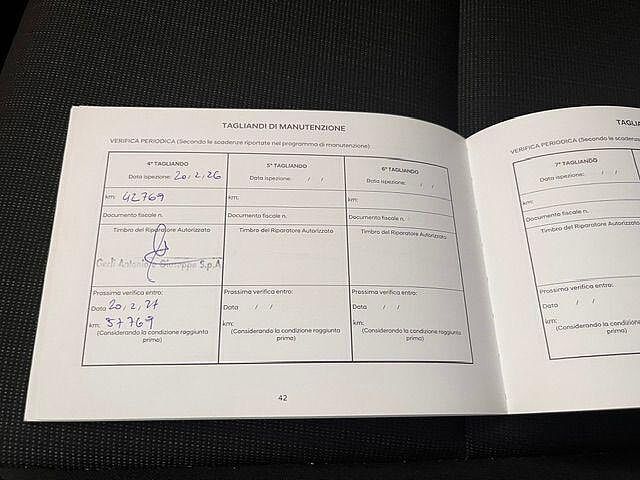 TAGLIANDI DI MANUTENZIONE
VERIFICA PERIODICA (Secondo le scadenze riportate nel programma di manutenzione)
4° TAGLIANDO
Data ispezione: 20, 2, 26
km: 42769
Documento fiscale n.
Timbro del Riparatore Autorizzato
Gerli Antonio e Giuseppe S.p.A.
Prossima verifica entro:
Data 20, 2, 27
km: 57769
(Considerando la condizione raggiunta
prima)
5° TAGLIANDO
Data ispezione: / /
km:
Documento fiscale n.
Timbro del Riparatore Autorizzato
Prossima verifica entro:
Data / /
km:
(Considerando la condizione raggiunta
prima)
6° TAGLIANDO
Data ispezione: / /
km:
Documento fiscale n.
Timbro del Riparatore Autorizzato
Prossima verifica entro:
Data / /
km:
(Considerando la condizione raggiunta
prima)
42
TAGLIA
VERIFICA PERIODICA (Secondo le scadenze
7° TAGLIANDO
Data ispezione: / /
km:
Documento fiscale n.
Timbro del Riparatore Autorizzato
Prossima verifica entro:
Data / /
km:
(Considerando la condizione
prima)